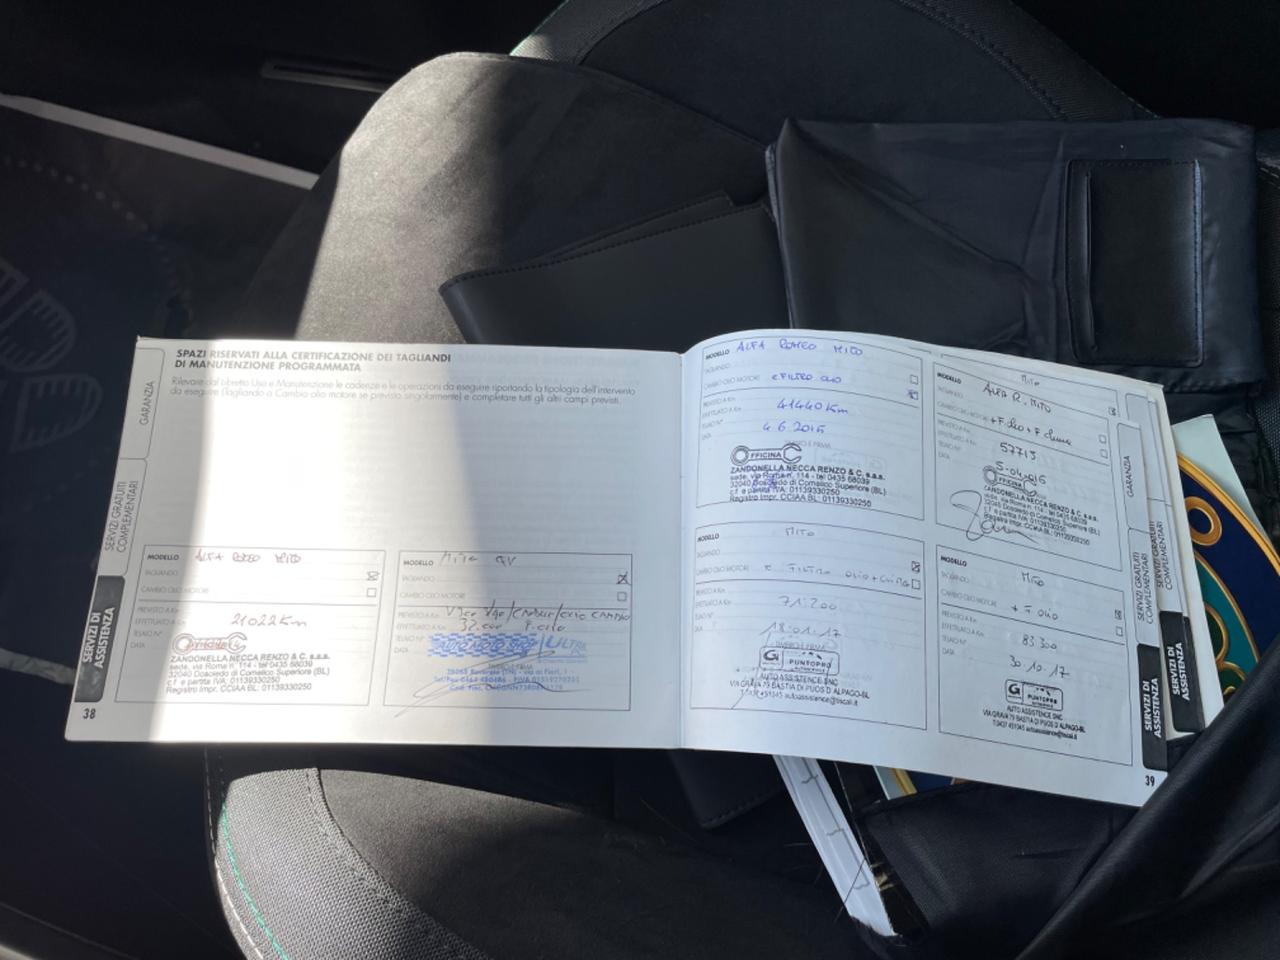 SPAZI RISERVATI ALLA CERTIFICAZIONE DEI TAGLIANDI
DI MANUTENZIONE PROGRAMMATA
Rilevare dal libretto Uso e Manutenzione le cadenze e le operazioni da eseguire riportando la tipologia dell'intervento
da eseguire (Tagliando a Cambio olio motore se previsto singolarmente) e completare tutti gli altri campi previsti.
GARANZIA
SERVIZI GRATUITI
COMPLEMENTARI
SERVIZI DI
ASSISTENZA
38
MODELLO ALFA ROMEO MITO
TAGLIANDO
CAMBIO OLIO MOTORE
PREVISTO A Km
EFFETTUATO A Km 21022 Km
TELAIO N°
DATA
OFFICINA
ZANDONELLA NECCA RENZO & C. s.a.s.
sede, via Roma n. 114 - tel 0435 68039
32040 Dosoledo di Comelico Superiore (BL)
c.f. e partita IVA: 01139330250
Registro Impr. CCIAA BL: 01139330250
MODELLO Mito QV
TAGLIANDO
CAMBIO OLIO MOTORE
PREVISTO A Km
EFFETTUATO A Km
TELAIO N°
DATA
ULTRA
TIMBRO E FIRMA
MODELLO ALFA ROMEO MITO
TAGLIANDO
CAMBIO OLIO MOTORE e FILTRO OLIO
PREVISTO A Km
EFFETTUATO A Km 41440 Km
TELAIO N°
DATA
OFFICINA
ZANDONELLA NECCA RENZO & C. s.a.s.
sede, via Roma n. 114 - tel 0435 68039
32040 Dosoledo di Comelico Superiore (BL)
c.f. e partita IVA: 01139330250
Registro Impr. CCIAA BL: 01139330250
MODELLO Mito
ALFA R. MITO
TAGLIANDO
CAMBIO OLIO MOTORE
PREVISTO A Km
EFFETTUATO A Km 57713
TELAIO N°
DATA
OFFICINA
ZANDONELLA NECCA RENZO & C. s.a.s.
sede, via Roma n. 114 - tel 0435 68039
32040 Dosoledo di Comelico Superiore (BL)
c.f. e partita IVA: 01139330250
Registro Impr. CCIAA BL: 01139330250
MODELLO MITO
TAGLIANDO
CAMBIO OLIO MOTORE
PREVISTO A Km
EFFETTUATO A Km 71.200
TELAIO N°
DATA 18.01.17
TIMBRO E FIRMA
G PUNTOPRO
AUTO ASSISTENCE SNC
VIA GRAVA 79 BASTIA DI PUOS D'ALPAGO-BL
T.0437 451045 autoassistence@tiscali.it
MODELLO MITO
TAGLIANDO
CAMBIO OLIO MOTORE + F. OLIO
PREVISTO A Km
EFFETTUATO A Km 83 300
TELAIO N°
DATA 30.10.17
G PUNTOPRO
AUTO ASSISTENCE SNC
VIA GRAVA 79 BASTIA DI PUOS D'ALPAGO-BL
T.0437 451045 autoassistence@tiscali.it
GARANZIA
SERVIZI GRATUITI
COMPLEMENTARI
SERVIZI DI
ASSISTENZA
39
SERVIZI GRATUITI
COMPLEMENTARI
SERVIZI DI
ASSISTENZA